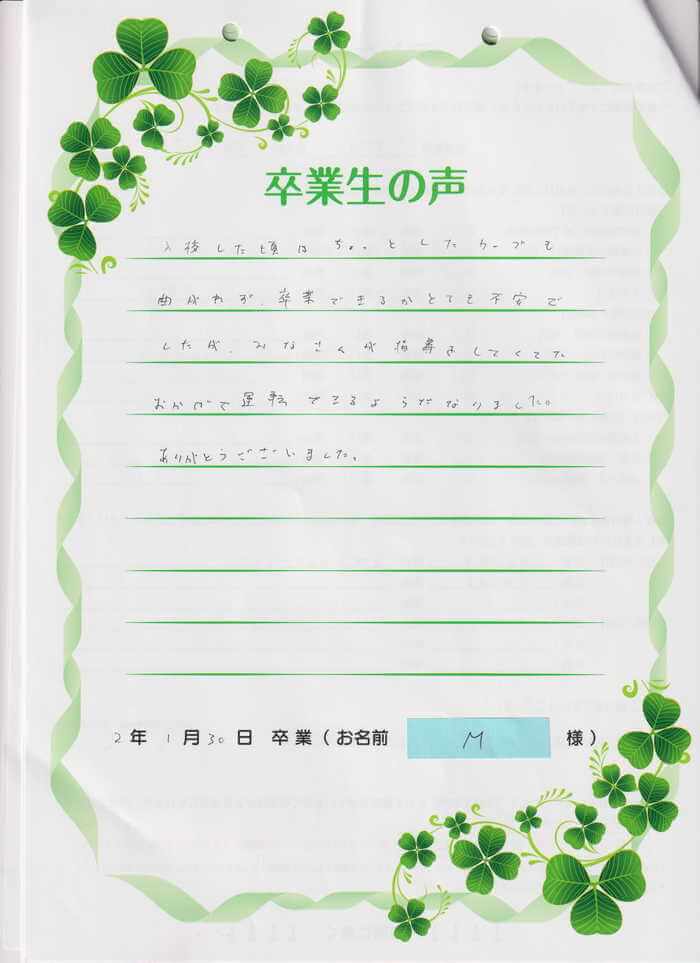 卒業生の声
入後した頃はちょっとしたカーブも
曲がれず、卒業できるかとても不安で
したが、みなさんが指導をしてくてた
おかげで運転できるようになりました。
ありがとうございました。
2年 1月30日 卒業(お名前 M 様)